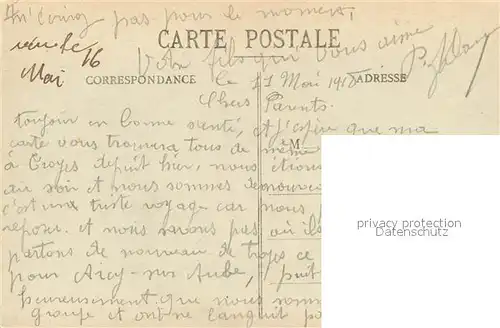 M'écrivez pas pour le moment,
Votre fils qui vous aime
reçu le 16
Mai
CARTE POSTALE
CORRESPONDANCE
ADRESSE
Le 11 Mai 1918
Chers Parents.
toujour en bonne santé, et j'espère que ma
carte vous trouvera tous de même
M
à Troyes depuit hier, nous étions
au soir et nous sommes de nouveau
c'est une triste voyage car nous
reposer. et nous savons pas où ils
partons de nouveau de troyes ce
pour Arcy-sur Aube, puit
heureusement que nous somm
groupe et ont ne languit pa
privacy protection
Datenschutz